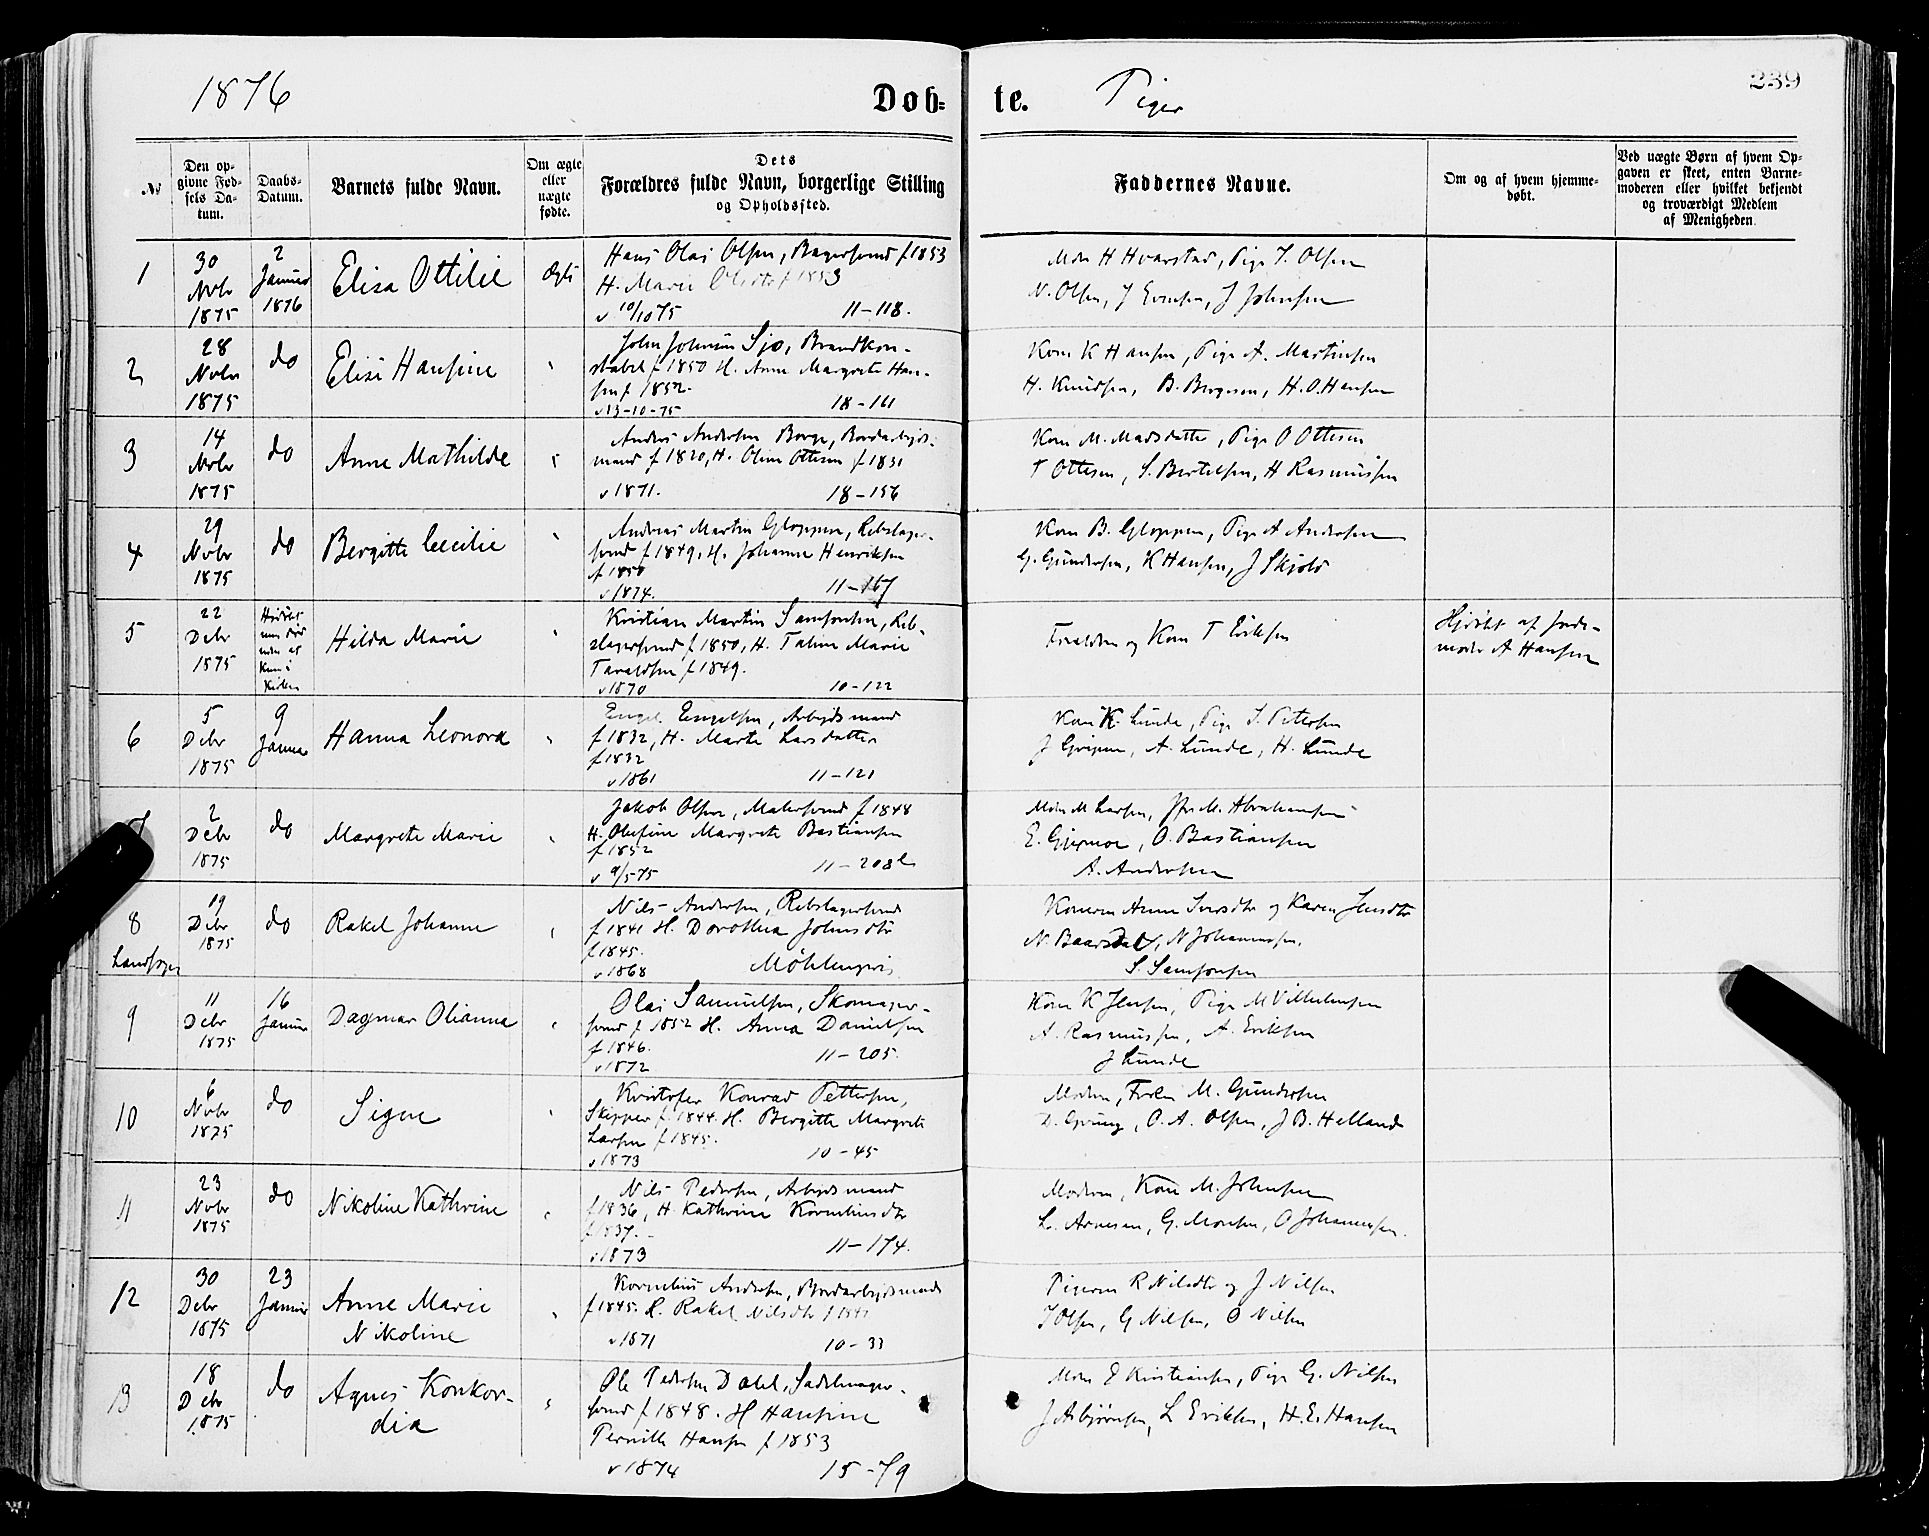 1876 Døb= te. Piger 239
№
Den op-
givne Fød-
sels Da-
tum.
Daabs-
Datum.
Barnets fulde Navn.
Om ægte
eller
uægte
fødte.
Dets
Forældres fulde Navn, borgerlige Stilling
og Opholdssted.
Faddernes Navne.
Om og af hvem hjemme-
døbt.
Ved uægte Børn af hvem Op-
gaven er skeet, enten Barne-
moderen eller hvilket bekjendt
og troværdigt Medlem
af Menigheden.
1
30
Nvbr
1875
2
Januar
1876
Elisa Ottilie
Ægte
Hans Olai Olsen, Bagersvend f 1853
H. Marie Olsdtr f 1853
v 10/10 75 11-118.
Mdm H Hvarstad, Pige T. Olsen
N. Olsen, J Evensen, J Johnsen
2
28
Nvbr
1875
do
Elise Hansine
"
John Johnsen Sjo, Brandkon-
stabel f 1850 H. Anne Margrete Han-
sen f 1852.
v 13-10-75 18-161
Kone K Hansen, Pige A. Martinsen
H. Knudsen, B. Bergesen, H. O. Hansen
3
14
Nvbr
1875
do
Anne Mathilde
"
Anders Andersen Borge, Bordarbejds-
mand f 1820, H. Oline Ottesen f 1831
v 1871. 18-156
Kone M. Madsdatter, Pige O Ottesen
T Ottesen, S. Bertelsen, H Rasmussen
4
29
Nvbr
1875
do
Bergitte Cecilie
"
Andreas Martin Gloppen, Rebslager-
svend f 1849, H. Johanne Henriksen
f 1850
v 1874. 11-167
Kone B. Gloppen, Pige A Andersen
G. Gundersen, K Hansen, J Skjold
5
22
Debr
1875
Hilda Marie
"
Kristian Martin Samsonsen, Reb-
slagersvend f 1850, H. Taline Marie
Taraldsen f 1849.
v 1870 10-122
Forældre og Kone T Eriksen
Hjdøbt af Jorde-
moder A Hansen
6
5
Debr
1875
9
Januar
Hanna Leonora
"
Engel Engelsen, Arbejdsmand
f 1832, H. Marte Larsdatter
f 1832
v 1861 11-121
Kone K. Lunde, Pige S. Pettersen
J Gripen, A. Lunde, H. Lunde
2
Debr
1875
do
Margrete Marie
"
Jakob Olsen, Malersvend f 1848
H. Olefine Margrete Bastiansen
f 1852
v 9/5-75 11-208b
Mdm M Larsen, Jfr M. Abrahamsen
E. Gjermoe, O. Bastiansen
A. Andersen
8
19
Debr
1875
do
Rakel Johanne
"
Nils Andersen, Rebslagersvend
f 1841 H. Dorothea Johnsdtr
f 1845.
v 1868
Konerne Anne Iversdtr og Karen Jensdtr
N. Baarsdal, N Johannessen,
S. Samsonsen
9
11
Debr
1875
16
Januar
Dagmar Olianna
"
Olai Samuelsen, Skomager-
svend f 1852 H. Anna Danielsen
f 1846.
v 1872 11-205.
Kone K Jensen, Pige M Vilhelmsen
A. Rasmussen, A. Eriksen
J Lunde
10
6
Nvbr
1875
do
Signe
"
Kristofer Konrad Pettersen,
Skipper f 1844. H. Bergitte Margrete
Larsen f 1845.
v 1873 10-45
Modern, Frøken M. Gundersen
D. Gprung, O. A. Olsen, J B. Helland
11
23
Nvbr
1875
do
Nikoline Kathrine
"
Nils Pedersen, Arbejdsmand
f 1836, H. Kathrine Korneliusdtr
f 1837.
v 1873 11-174.
Moderen, Kone M. Johnsen
L. Arnesen, G. Monsen, O Johannessen.
12
30
Debr
1875
23
Januar
Anne Marie
Nikoline
"
Kornelius Andersen, Bordarbejdsmand
f 1845. H. Rakel Nilsdtr
v 1871 10-33
Pigerne R Nilsdtr og J Nilsen
J Olsen, G Nilsen, O Nilsen
13
18
Debr
1875
do
Agnes Konkor-
dia
"
Ole Pedersen Dahl, Sadelmager-
svend f 1848. H Hansine
Pernille Hansen f 1853
v 1874 15-79
Mdm E Kristiansen, Pige G. Nilsen
J Asbjørnsen, L Eriksen, H. E. Hansen